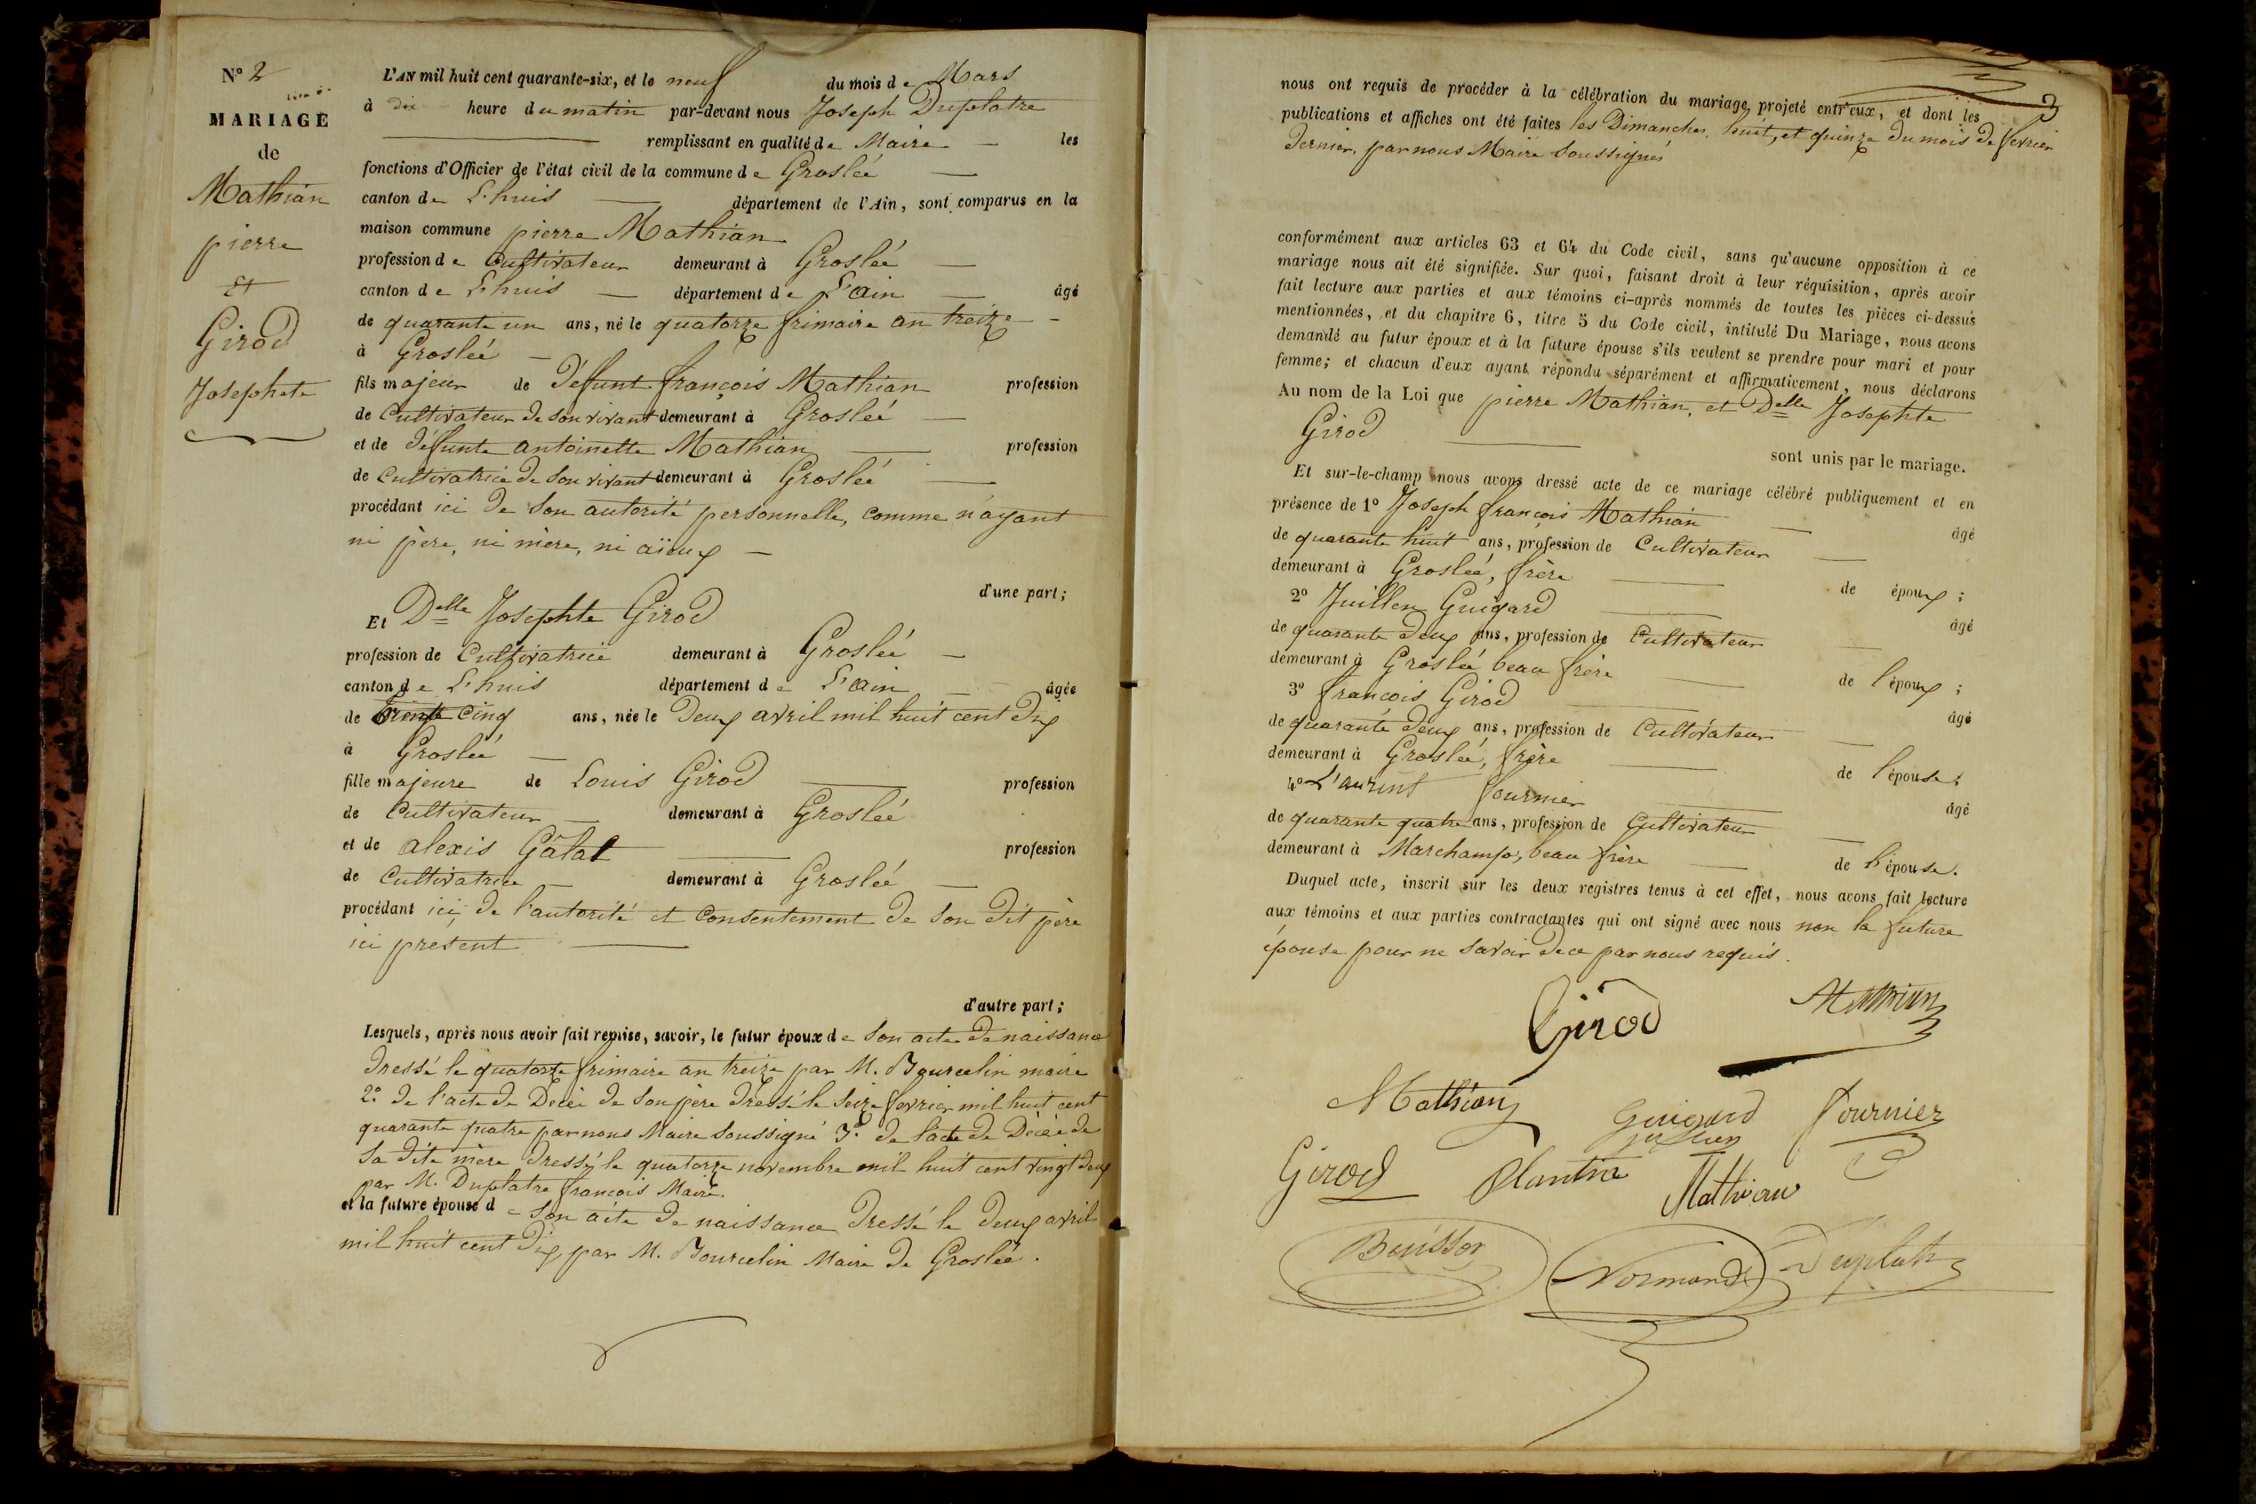 N° 2
MARIAGE
de
Mathian
pierre
et
Girod
Josephte
L'AN mil huit cent quarante-six, et le neuf du mois de Mars
à dix heure du matin par-devant nous Joseph Duplatre
remplissant en qualité de Maire les
fonctions d'Officier de l'état civil de la commune de Groslée
canton de L'huis département de l'Ain, sont comparus en la
maison commune pierre Mathian
profession de Cultivateur demeurant à Groslée
canton de L'huis département de L'ain âgé
de quarante un ans, né le quatorze frimaire an treize
à Groslée
fils majeur de défunt françois Mathian profession
de Cultivateur de son vivant demeurant à Groslée
et de défunte antoinette Mathian profession
de Cultivatrice de son vivant demeurant à Groslée
procédant ici de son autorité personnelle, comme n'ayant
ni père, ni mère, ni aïeux
d'une part;
Et Delle Josephte Girod
profession de Cultivatrice demeurant à Groslée
canton de L'huis département de L'ain âgée
de trente cinq ans, née le deux avril mil huit cent dix
à Groslée
fille majeure de Louis Girod profession
de Cultivateur demeurant à Groslée
et de alexis Gâlat profession
de Cultivatrice demeurant à Groslée
procédant ici, de l'autorité et consentement de son dit père
ici présent
d'autre part;
Lesquels, après nous avoir fait remise, savoir, le futur époux de son acte de naissance
dressé le quatorze frimaire an treize par M. Bourcelin maire
2° de l'acte de Décè de son père dressé le seize fevrier mil huit cent
quarante quatre par nous Maire soussigné 3° de l'acte de Décè de
sa dite mère dressé le quatorze novembre mil huit cent vingt deux
par M. Duplatre françois Maire.
et la future épouse de son acte de naissance dressé le deux avril
mil huit cent dix par M. Bourcelin Maire de Groslée.
3
nous ont requis de procéder à la célébration du mariage projeté entr'eux, et dont les
publications et affiches ont été faites les Dimanches huit, et quinze du mois de fevrier
dernier, par nous Maire soussigné
conformément aux articles 63 et 64 du Code civil, sans qu'aucune opposition à ce
mariage nous ait été signifiée. Sur quoi, faisant droit à leur réquisition, après avoir
fait lecture aux parties et aux témoins ci-après nommés de toutes les pièces ci-dessus
mentionnées, et du chapitre 6, titre 5 du Code civil, intitulé Du Mariage, nous avons
demandé au futur époux et à la future épouse s'ils veulent se prendre pour mari et pour
femme; et chacun d'eux ayant répondu séparément et affirmativement, nous déclarons
Au nom de la Loi que pierre Mathian, et Delle Josephte
Girod
sont unis par le mariage.
Et sur-le-champ nous avons dressé acte de ce mariage célébré publiquement et en
présence de 1° Joseph françois Mathian âgé
de quarante huit ans, profession de Cultivateur
demeurant à Groslée, frère de époux;
2° Juillen Guigard âgé
de quarante deux ans, profession de Cultivateur
demeurant à Groslée beau frère de l'époux;
3° françois Girod âgé
de quarante deux ans, profession de Cultivateur
demeurant à Groslée, frère de l'épouse;
4° L'aurent fournier âgé
de quarante quatre ans, profession de Cultivateur
demeurant à Marchamp, beau frère de l'épouse.
Duquel acte, inscrit sur les deux registres tenus à cet effet, nous avons fait lecture
aux témoins et aux parties contractantes qui ont signé avec nous non la future
épouse pour ne savoir de ce par nous requis.
Girod Mathian
Mathian Guigard Juillen fournier
Girod Plantin Mathian
Normand Duplatre